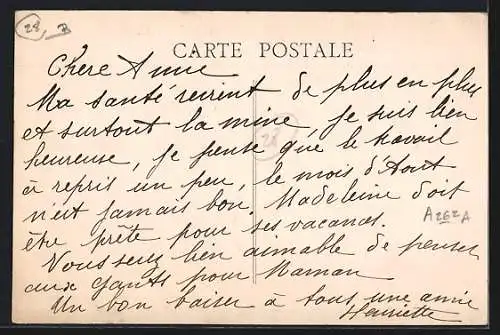 28 B
CARTE POSTALE
Chere Anne
Ma santé revient de plus en plus
et surtout la mine je suis bien
heureuse, je pense que le travail
28
à repris un peu, le mois d'Aout
n'est jamais bon. Madeleine doit
A262A
être prête pour ses vacances.
Vous serez bien aimable de penser
aux gants pour Maman
Un bon baiser à tous, une amie
Henriette